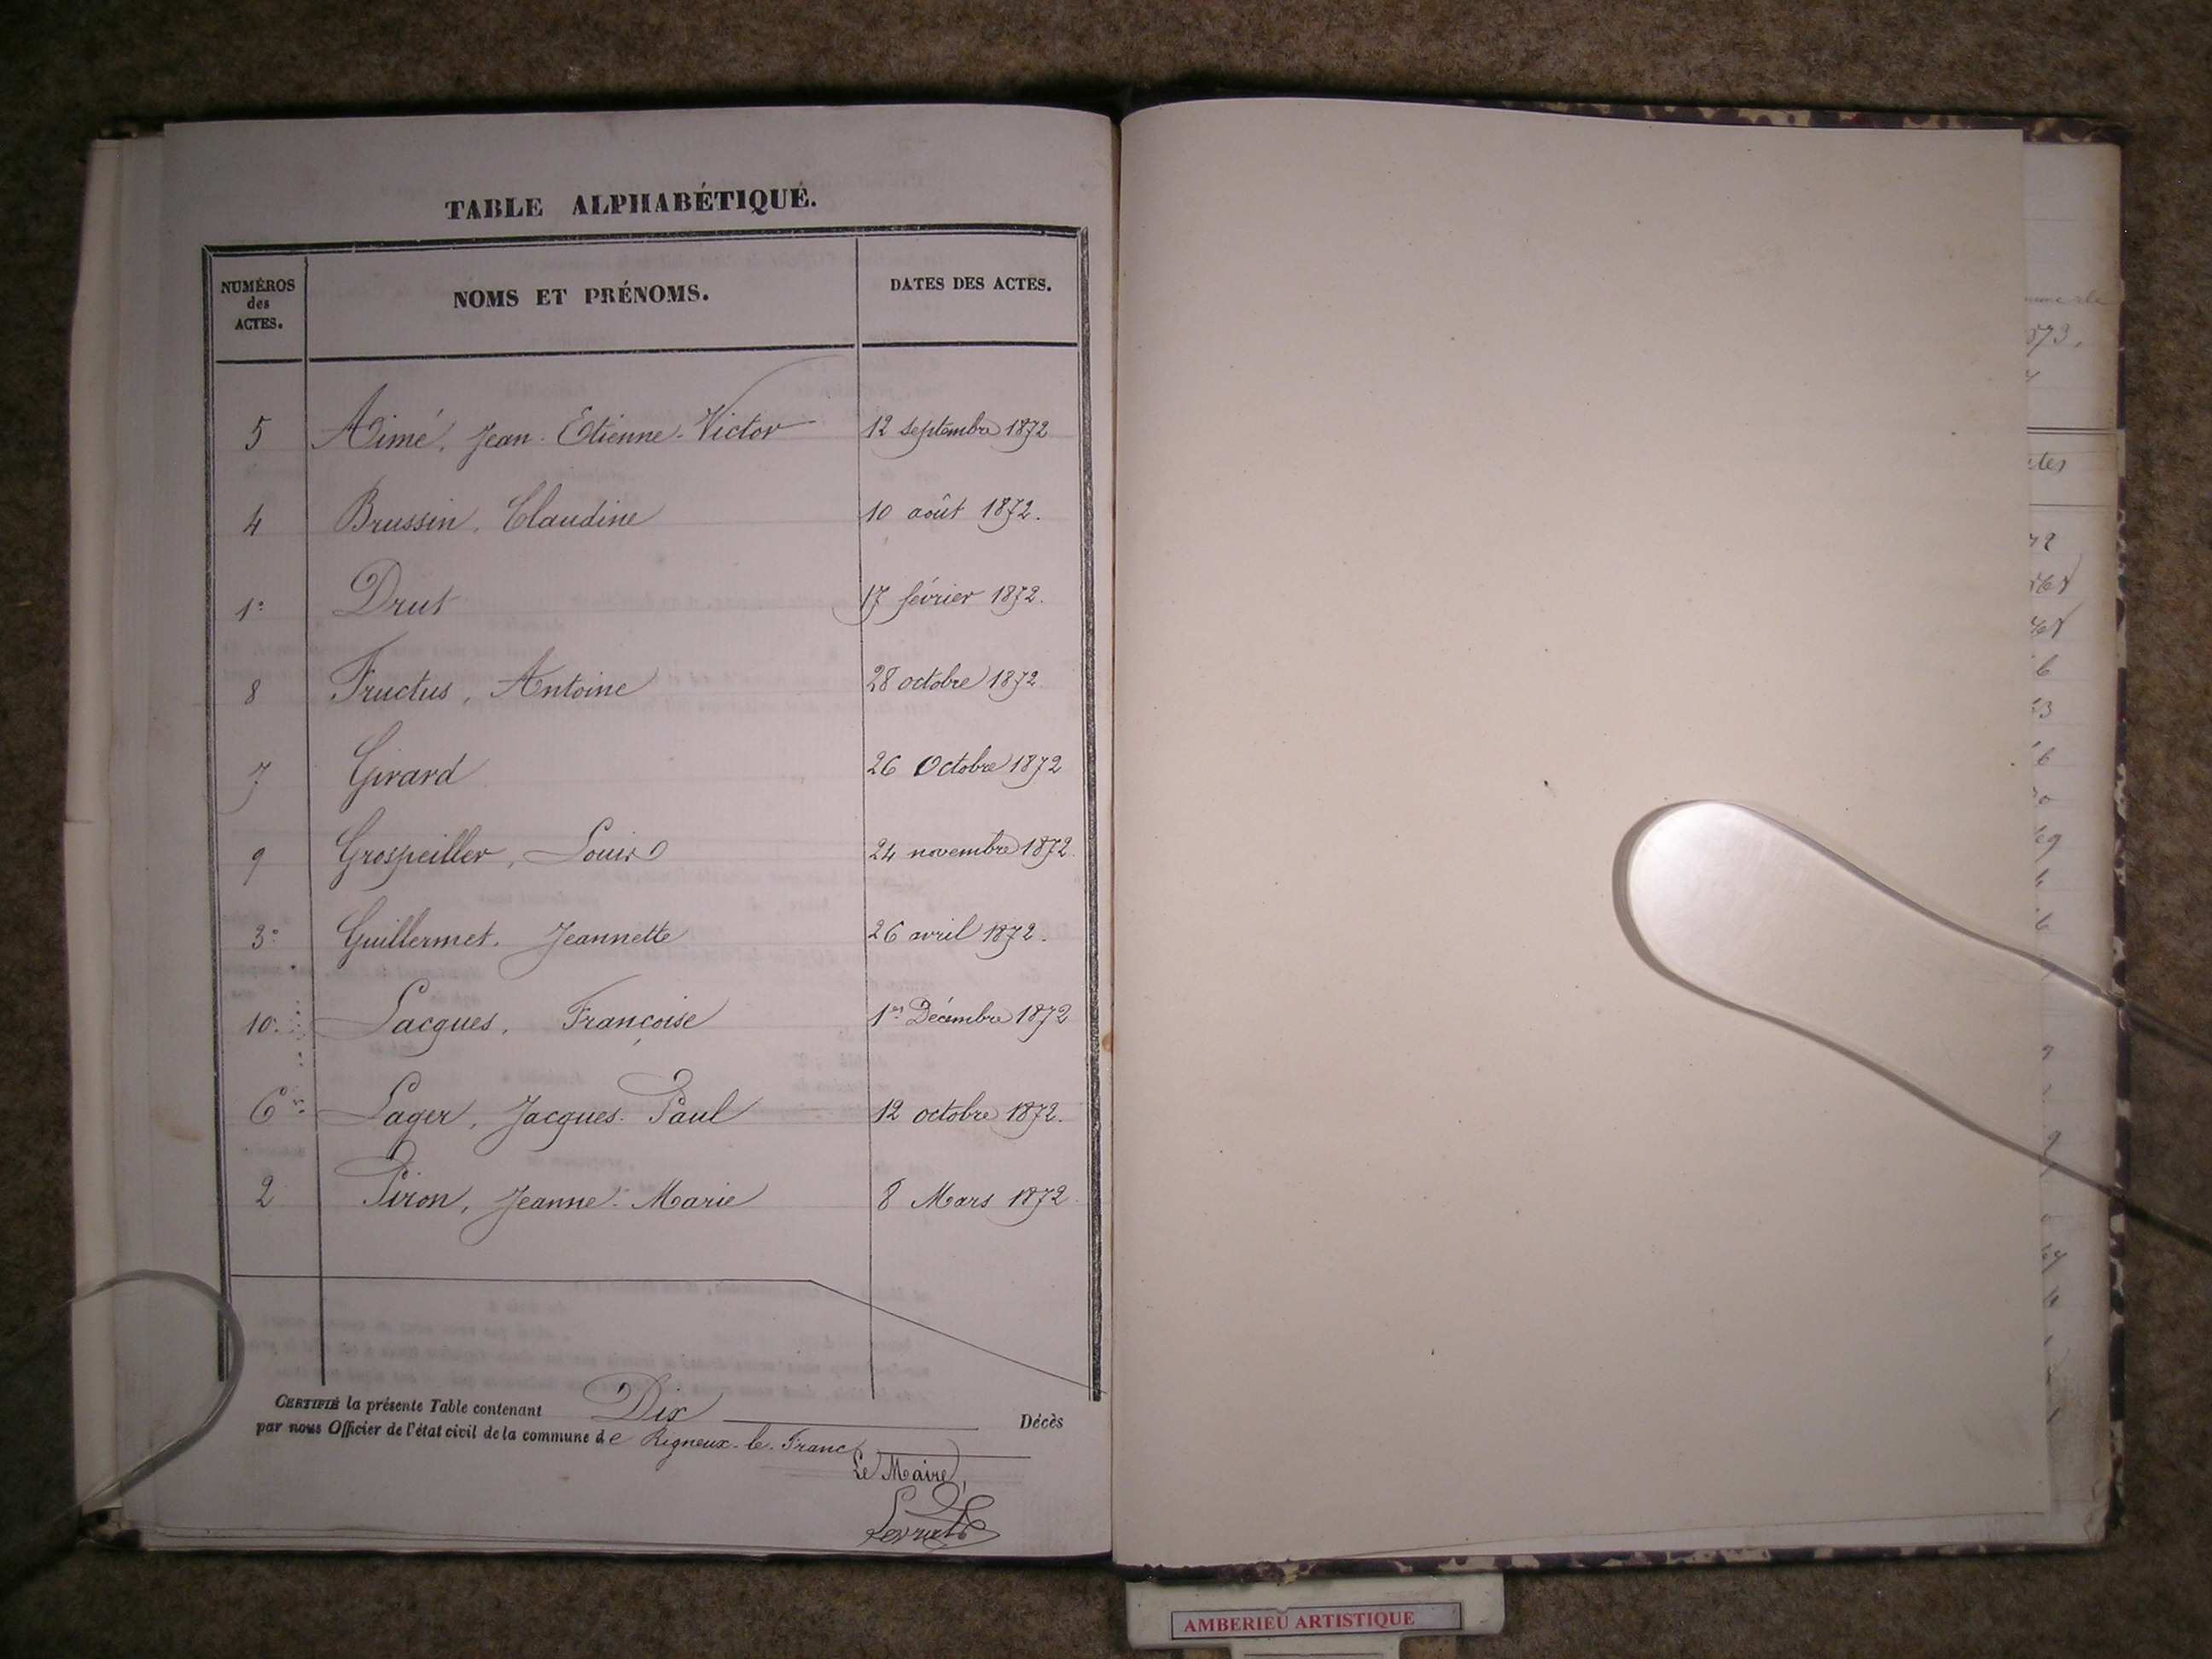 TABLE ALPHABÉTIQUE.
NUMÉROS des ACTES. NOMS ET PRÉNOMS. DATES DES ACTES.
5 Aimé, Jean-Etienne-Victor 12 septembre 1872
4 Brussin, Claudine 10 août 1872.
1º Drut 17 février 1872.
8 Fructus, Antoine 28 octobre 1872
7 Girard 26 Octobre 1872
9 Grospeiller, Louis 24 novembre 1872.
3º Guillermet, Jeannette 26 avril 1872.
10º Jacques, Françoise 1er Décembre 1872
6 Lager, Jacques-Paul 12 octobre 1872.
2 Piron, Jeanne-Marie 8 Mars 1872
CERTIFIÉ la présente Table contenant Dix Décès
par nous Officier de l'état civil de la commune de Rigneux-le-Franc
Le Maire,
AMBERIEU ARTISTIQUE